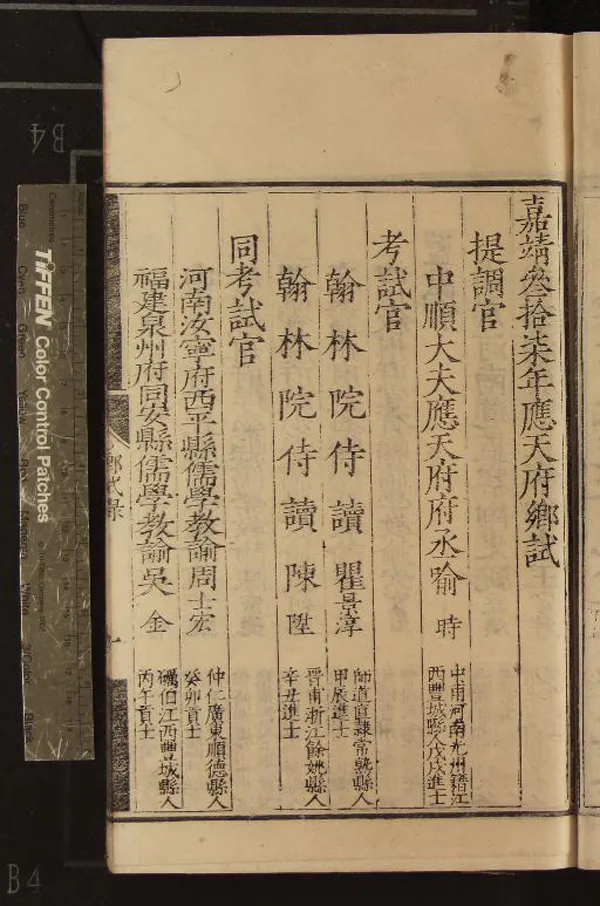 嘉靖叄拾柒年應天府鄉試
提調官
中順大夫應天府府丞喻 時 中甫河南光州籍江西豐城縣人戊戌進士
考試官
翰林院侍讀 瞿景淳 師道直隸常熟縣人甲辰進士
翰林院侍讀 陳 陞 晉甫浙江餘姚縣人辛丑進士
同考試官
河南汝寧府西平縣儒學教諭周士宏 仲仁廣東順德縣人癸卯貢士
福建泉州府同安縣儒學教諭吳 金 礪伯江西豐城縣人丙午貢士
鄉試錄
B4
B4
TIFFEN Color Control Patches
Blue
Cyan
Green
Yellow
Red
Magenta
White
3/Color
Black
Centimetres